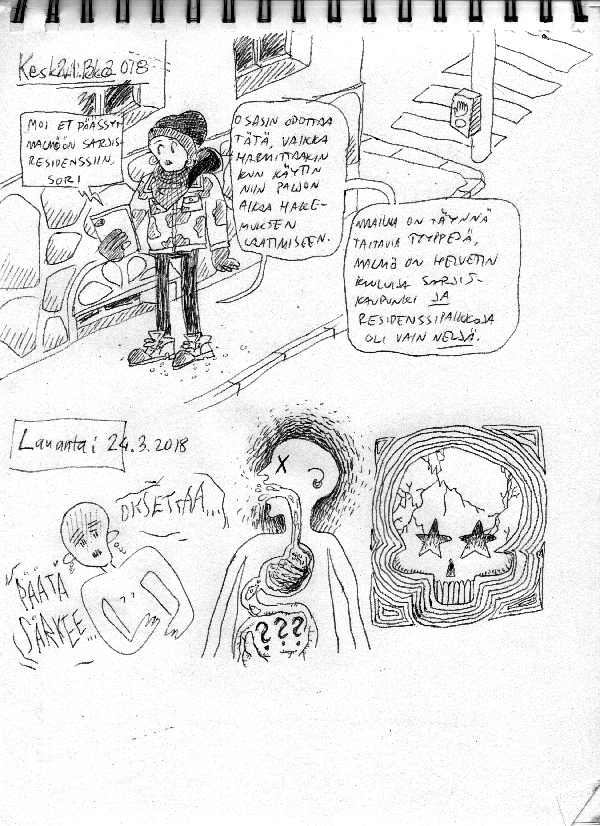 MOI ET PÄÄSSYT
MALMÖÖN SARJIS-
RESIDENSSIIN,
SORI
OSASIN ODOTTAA
TÄTÄ, VAIKKA
HARMITTAAKIN
KUN KÄYTIN
NIIN PALJON
AIKAA HAKE-
MUKSEN
LAATIMISEEN.
MAAILMA ON TÄYNNÄ
TAITAVIA TYYPPEJÄ,
MALMÖ ON HELVETIN
KUULUISA SARJIS-
KAUPUNKI JA
RESIDENSSIPAIKKOJA
OLI VAIN NELJÄ.
Lauantai 24.3.2018
OKSETTAA...
PÄÄTÄ
SÄRKEE...
X
? ? ?